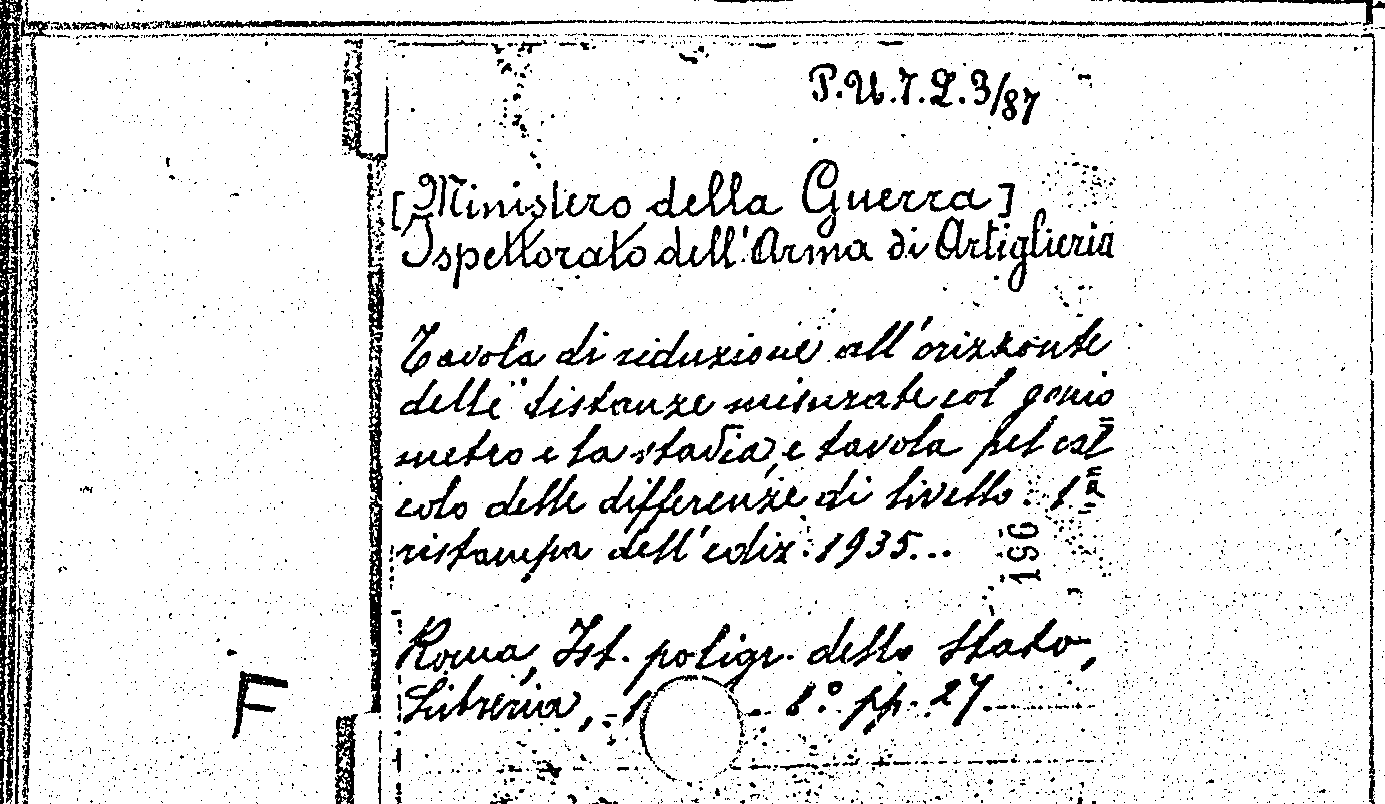 P.U.7.L.3/87
[Ministero della Guerra]
Ispettorato dell'Arma di Artiglieria
Tavola di riduzione all'orizzonte
delle distanze misurate col gonio
metro e la stadia, e tavola pel cal
colo delle differenze di livello. 1ª
ristampa dell'ediz. 1935...
196
Roma, Ist. poligr. dello Stato,
Libreria, 1 8° pp. 27
F